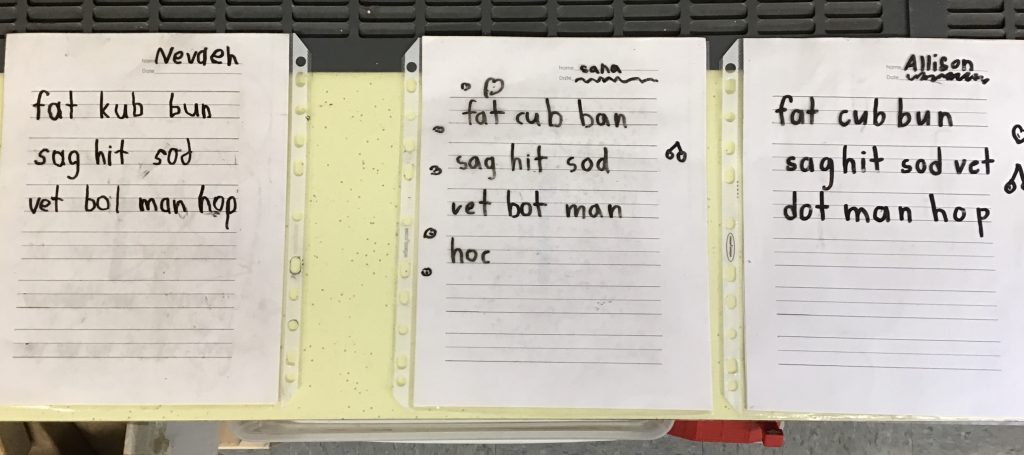 Name Nevaeh
Date
fat kub bun
sag hit sod
vet bol man hop
Name cana
Date
fat cub ban
sag hit sod
vet bot man
hoc
Name Allison
Date
fat cub bun
sag hit sod vet
dot man hop